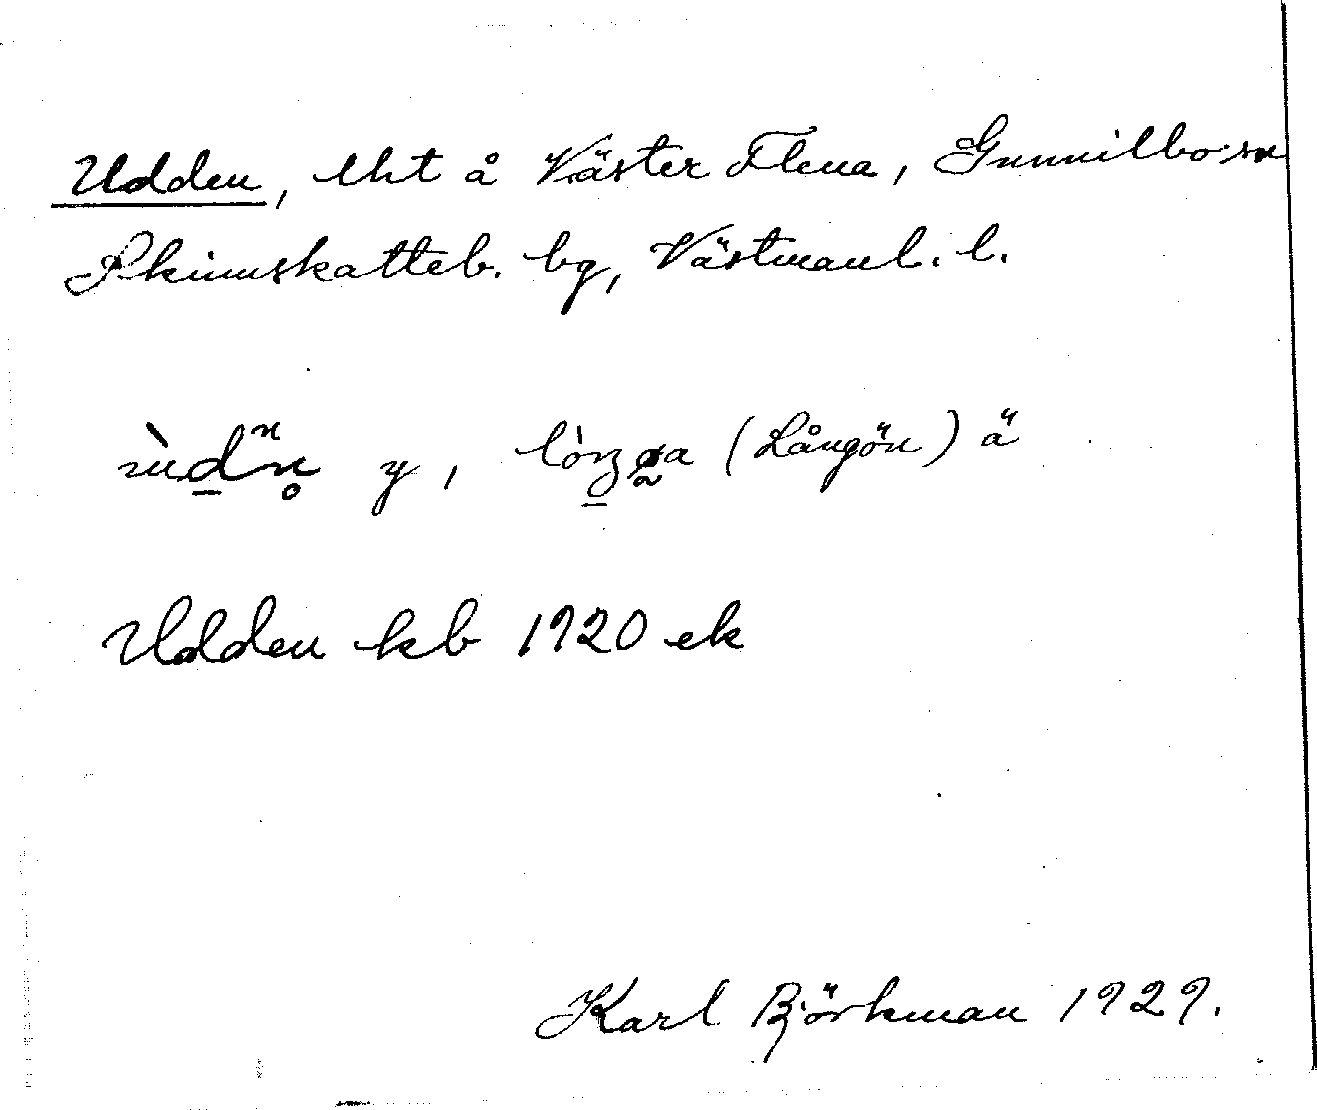 Udden, lht å Väster Flena, Gunnilbo sn
Skinnskatteb. bg, Västmanl. l.
y, (Långön) ä
Udden kb 1920 ek
Karl Björkman 1929.